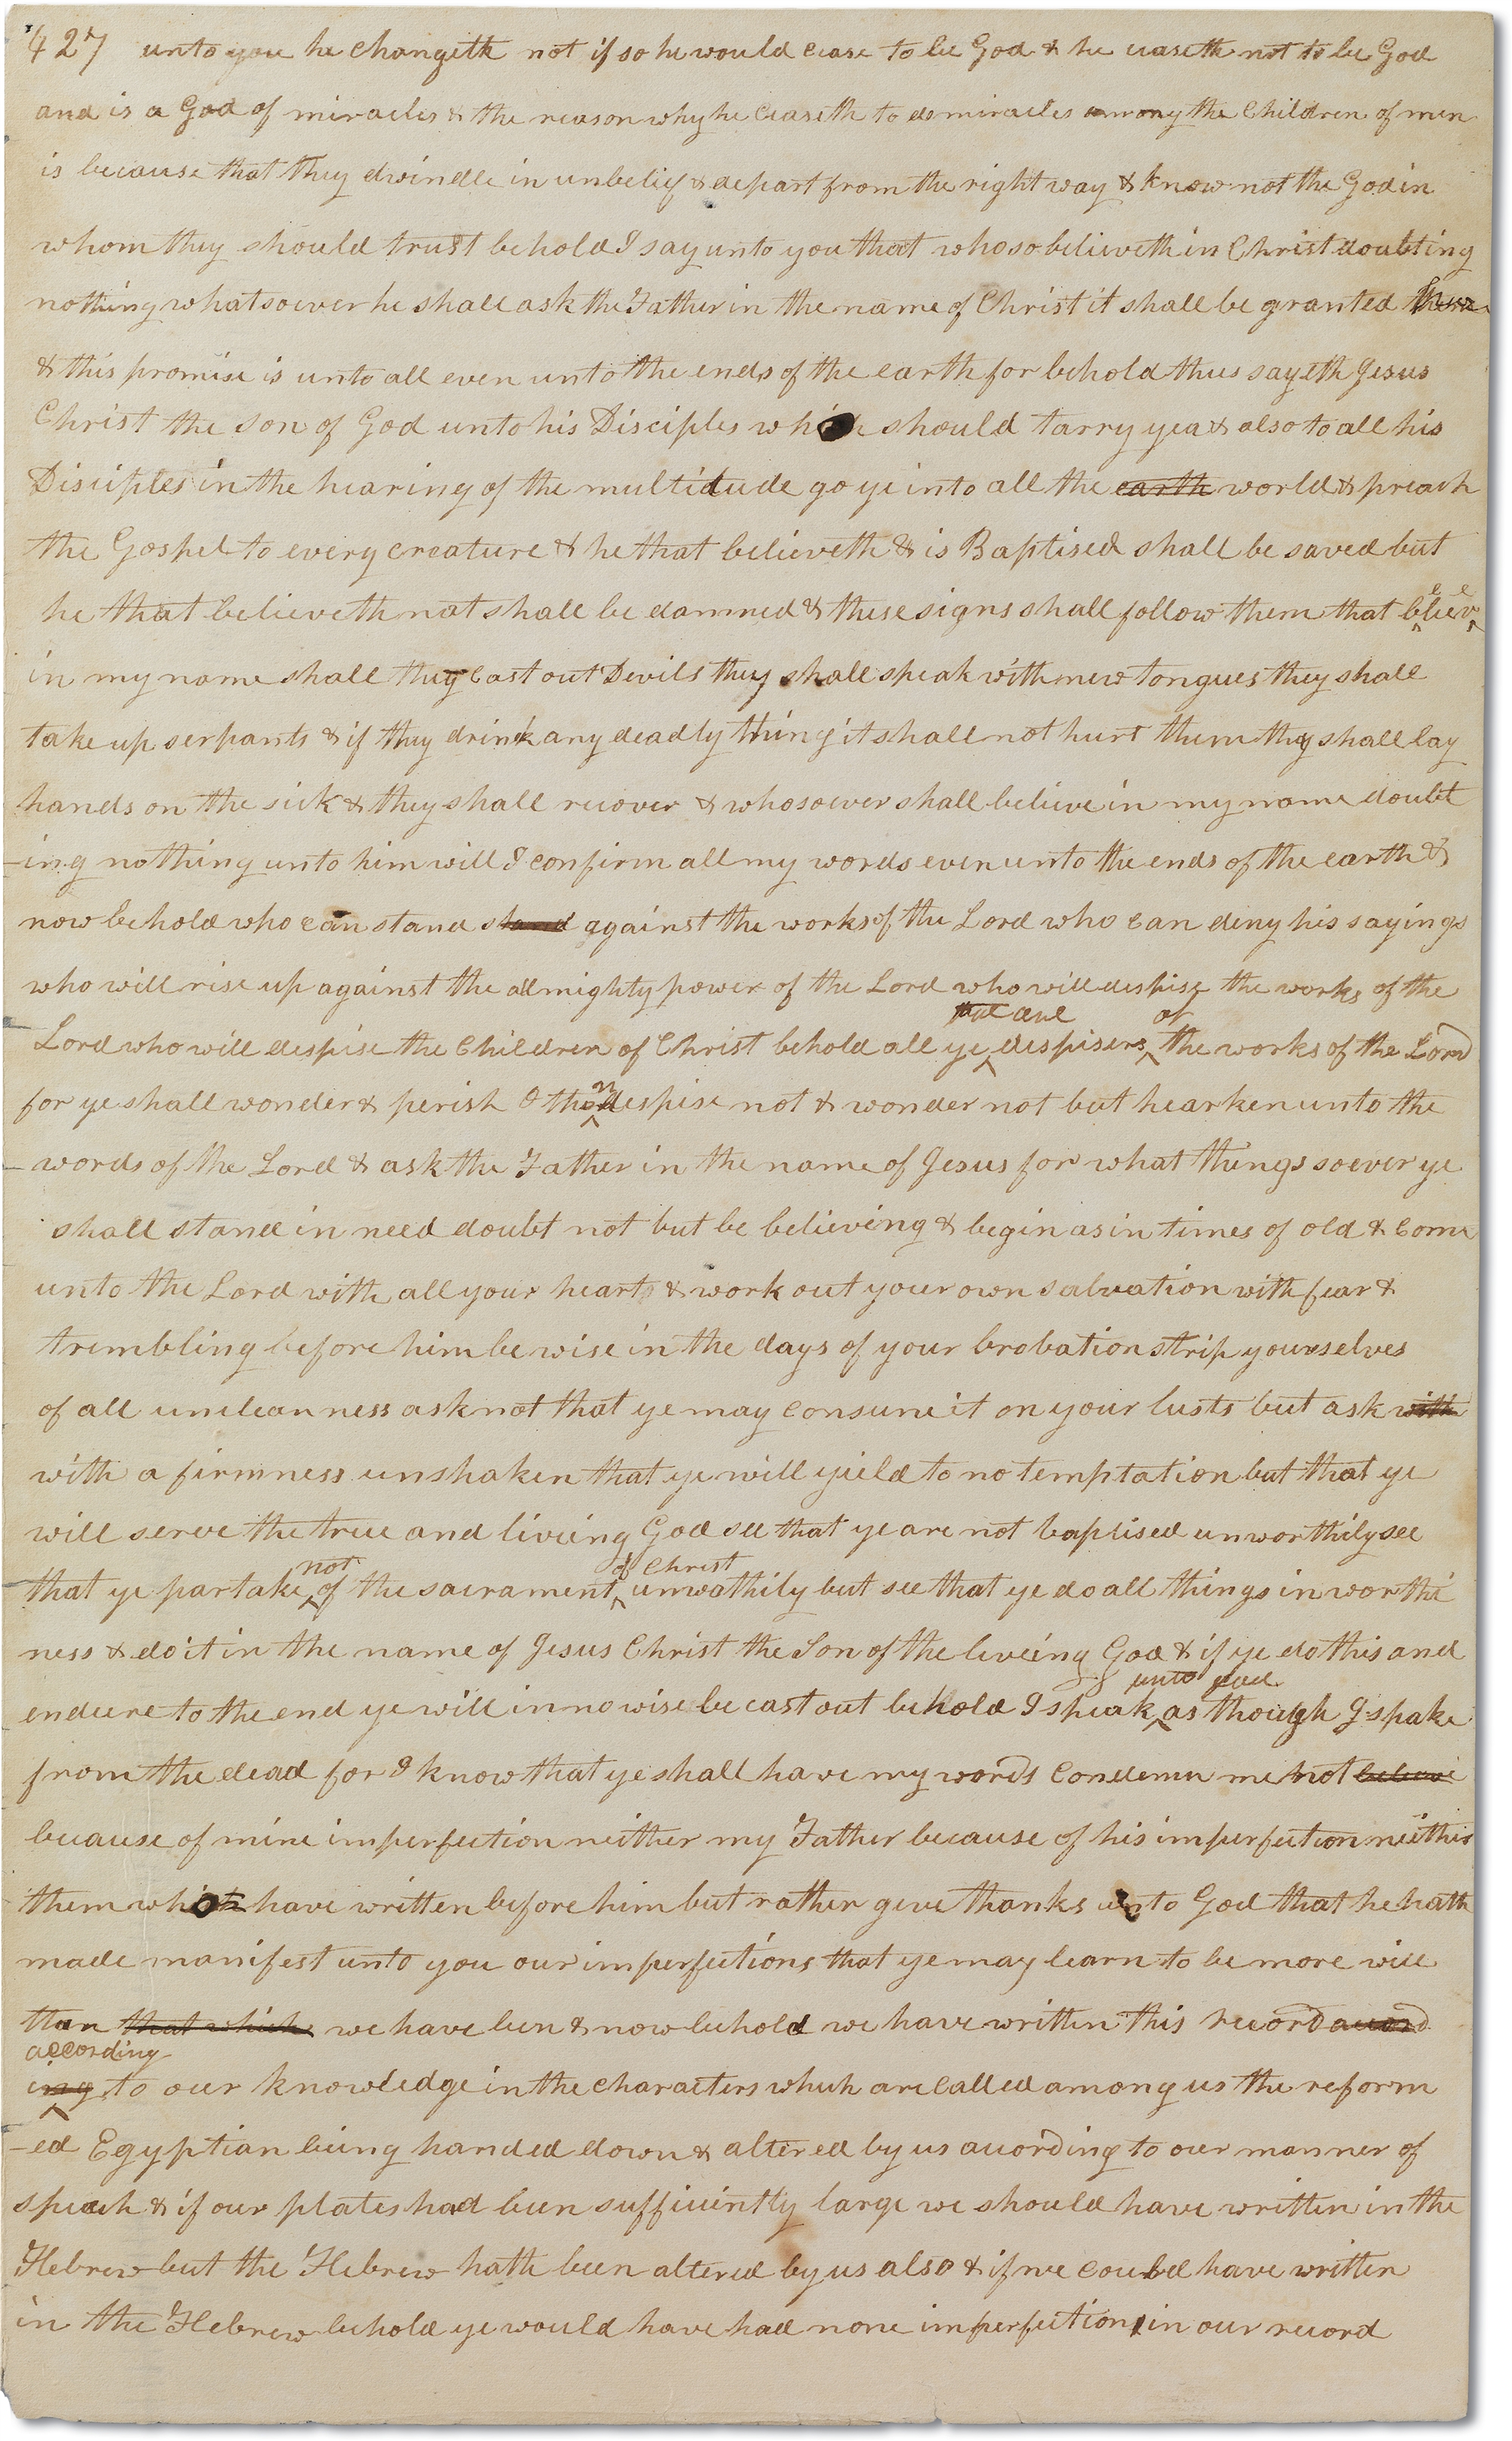 427 unto you he changeth not if so he would cease to be God & he ceaseth not to be God
and is a God of miracles & the reason why he ceaseth to do miracles among the Children of men
is because that they dwindle in unbelief & depart from the right way & know not the God in
whom they should trust behold I say unto you that whoso believeth in Christ doubting
nothing whatsoever he shall ask the Father in the name of Christ it shall be granted
& this promise is unto all even unto the ends of the earth for behold thus sayeth Jesus
Christ the son of God unto his Disciples which should tarry yea & also to all his
Disciples in the hearing of the multidude go ye into all the earth world & preach
the Gospel to every creature & he that believeth & is Baptised shall be saved but
he that believeth not shall be damned & these signs shall follow them that believe
in my name shall they cast out Devils they shall speak with new tongues they shall
take up serpants & if they drink any deadly thing it shall not hurt them they shall lay
hands on the sick & they shall recover & whosoever shall believe in my name doubt
-ing nothing unto him will I confirm all my words even unto the ends of the earth &
now behold who can stand stand against the works of the Lord who can deny his sayings
who will rise up against the allmighty power of the Lord who will despise the works of the
Lord who will despise the Children of Christ behold all ye who are despisers of the works of the Lord
for ye shall wonder & perish O then despise not & wonder not but hearken unto the
words of the Lord & ask the Father in the name of Jesus for what things soever ye
shall stand in need doubt not but be believing & begin as in times of old & come
unto the Lord with all your heart & work out your own salvation with fear &
trembling before him be wise in the days of your brobation strip yourselves
of all uncleanness ask not that ye may consume it on your lusts but ask with
with a firmness unshaken that ye will yield to no temptation but that ye
will serve the true and liveing God see that ye are not baptised unworthily see
that ye partake not of the sacrament of Christ unwothily but see that ye do all things in worthi
ness & do it in the name of Jesus Christ the Son of the liveing God & if ye do this and
endure to the end ye will in no wise be cast out behold I speak unto you as though I spake
from the dead for I know that ye shall have my words condemn me not believe
because of mine imperfection neither my Father because of his imperfection neither
them which have written before him but rather give thanks unto God that he hath
made manifest unto you our imperfections that ye may learn to be more wise
than that which we have been & now behold we have written this record accord
ing according to our knowledge in the characters which are called among us the reform
-ed Egyptian being handed down & altered by us according to our manner of
speach & if our plates had been sufficiently large we should have written in the
Hebrew but the Hebrew hath been altered by us also & if we could have written
in the Hebrew behold ye would have had none imperfection in our record